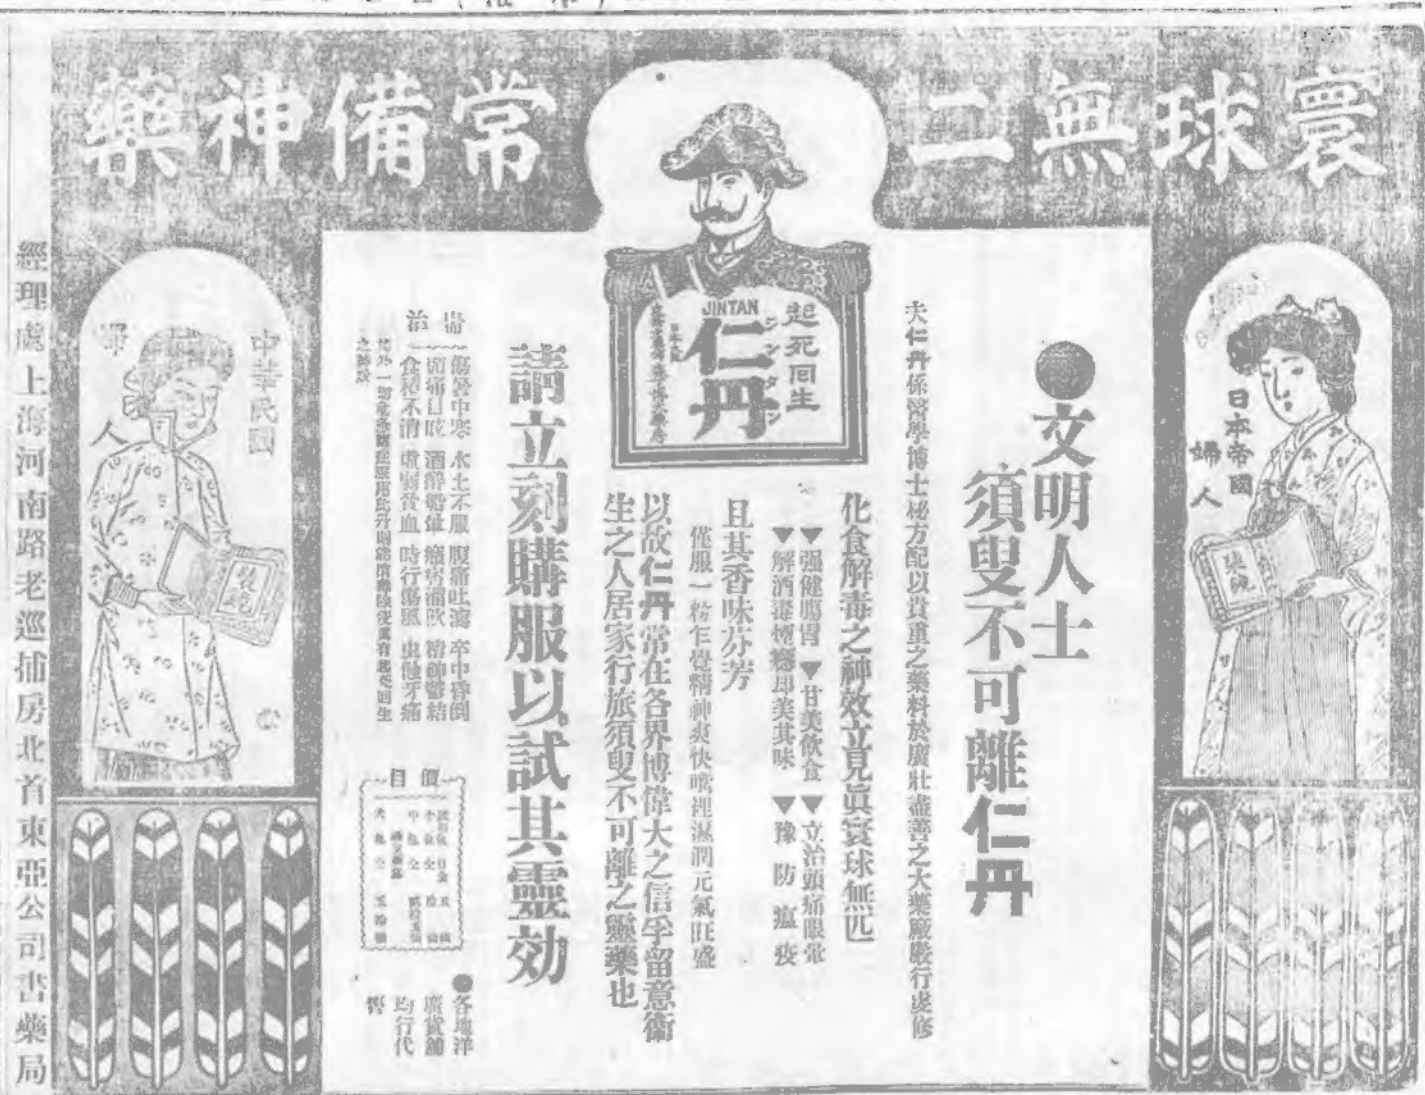 寰球無二
常備神藥
日本帝國
婦人
●文明人士
須臾不可離仁丹
夫仁丹係醫學博士秘方配以貴重之藥料於廣壯盡善之大藥廠嚴行虔修
化食解毒之神效立見眞寰球無匹
▼强健腸胃 ▼甘美飲食 ▼立治頭痛眼暈
▼解酒毒 美其味 ▼豫防瘟疫
且其香味芬芳
僅服一粒乍覺精神爽快喉裡滋潤元氣旺盛
以故仁丹常在各界博偉大之信孚留意衞
生之人居家行旅須臾不可離之靈藥也
起死回生
JINTAN
仁丹
ジンタン
請立刻購服以試其靈効
治
傷暑中寒 水土不服 腹痛吐瀉 卒中昏倒
頭痛目眩 酒醉船暈 精神鬱結
食積不消 虛弱貧血 時行傷風 虫蝕牙痛
價目
●各地洋
廣貨舖
均行代
售
中華民國
婦人
經理處上海河南路老巡捕房北首東亞公司書藥局